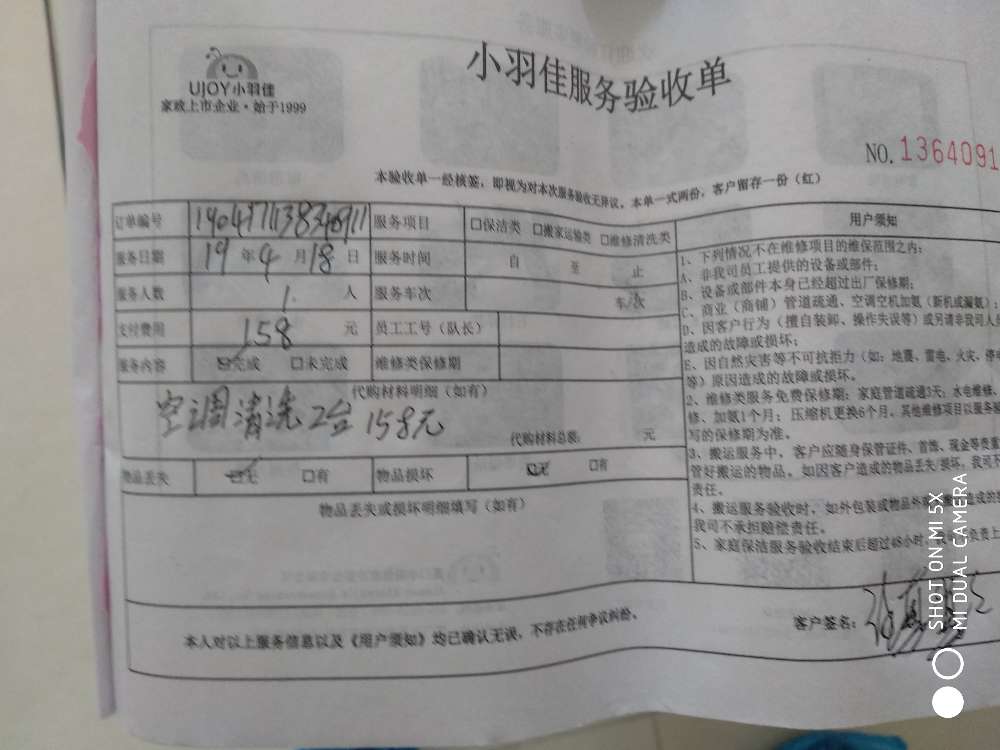 UJOY小羽佳
家政上市企业·始于1999
小羽佳服务验收单
NO. 1364091
本验收单一经核签，即视为对本次服务验收无异议。本单一式两份，客户留存一份（红）
订单编号 服务项目 □保洁类 □搬家运输类 □维修清洗类
服务日期 19 年 4 月 18 日 服务时间 自 至 止
服务人数 1 人 服务车次 车/次
支付费用 158 元 员工工号（队长）
服务内容 ☑完成 □未完成 维修类保修期
代购材料明细（如有）
空调清洗2台 158元
代购材料总额： 元
物品丢失 ☑无 □有 物品损坏 ☑无 □有
物品丢失或损坏明细填写（如有）
用户须知
1、下列情况不在维修项目的维保范围之内：
A、非我司员工提供的设备或部件；
B、设备或部件本身已经超过出厂保修期；
C、商业（商铺）管道疏通、空调空机加氨（新机或漏氨）；
D、因客户行为（擅自装卸、操作失误等）或另请非我司人
造成的故障或损坏；
E、因自然灾害等不可抗拒力（如：地震、雷电、火灾、停
等）原因造成的故障或损坏。
2、维修类服务免费保修期：家庭管道疏通3天；水电维修、
修、加氨1个月；压缩机更换6个月，其他维修项目以服务
写的保修期为准。
3、搬运服务中，客户应随身保管证件、首饰、现金等贵重
管好搬运的物品。如因客户造成的物品丢失/损坏，我司不
责任。
4、搬运服务验收时，如外包装或物品外
我司不承担赔偿责任。
5、家庭保洁服务验收结束后超过48小时，
本人对以上服务信息以及《用户须知》均已确认无误，不存在任何争议纠纷。
客户签名：
SHOT ON MI 5X
MI DUAL CAMERA